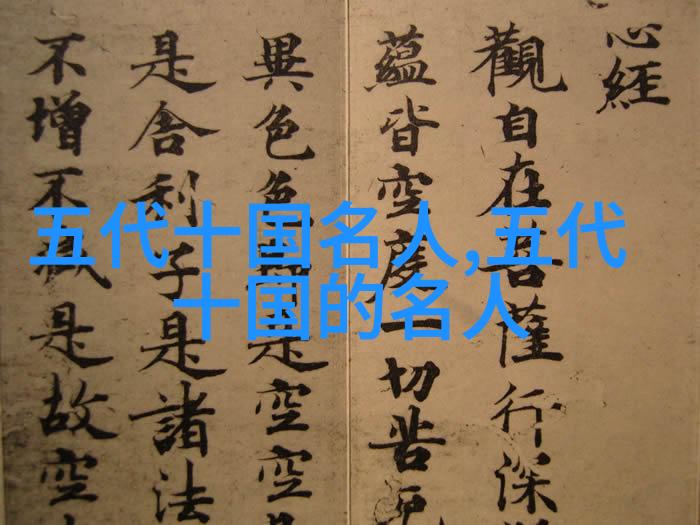 心經
觀自在菩薩行深
蘊皆空度一切苦厄
異色色是空空
是舍利子是諸法
不增不減是故空
五代十国名人,五代
十国的名人